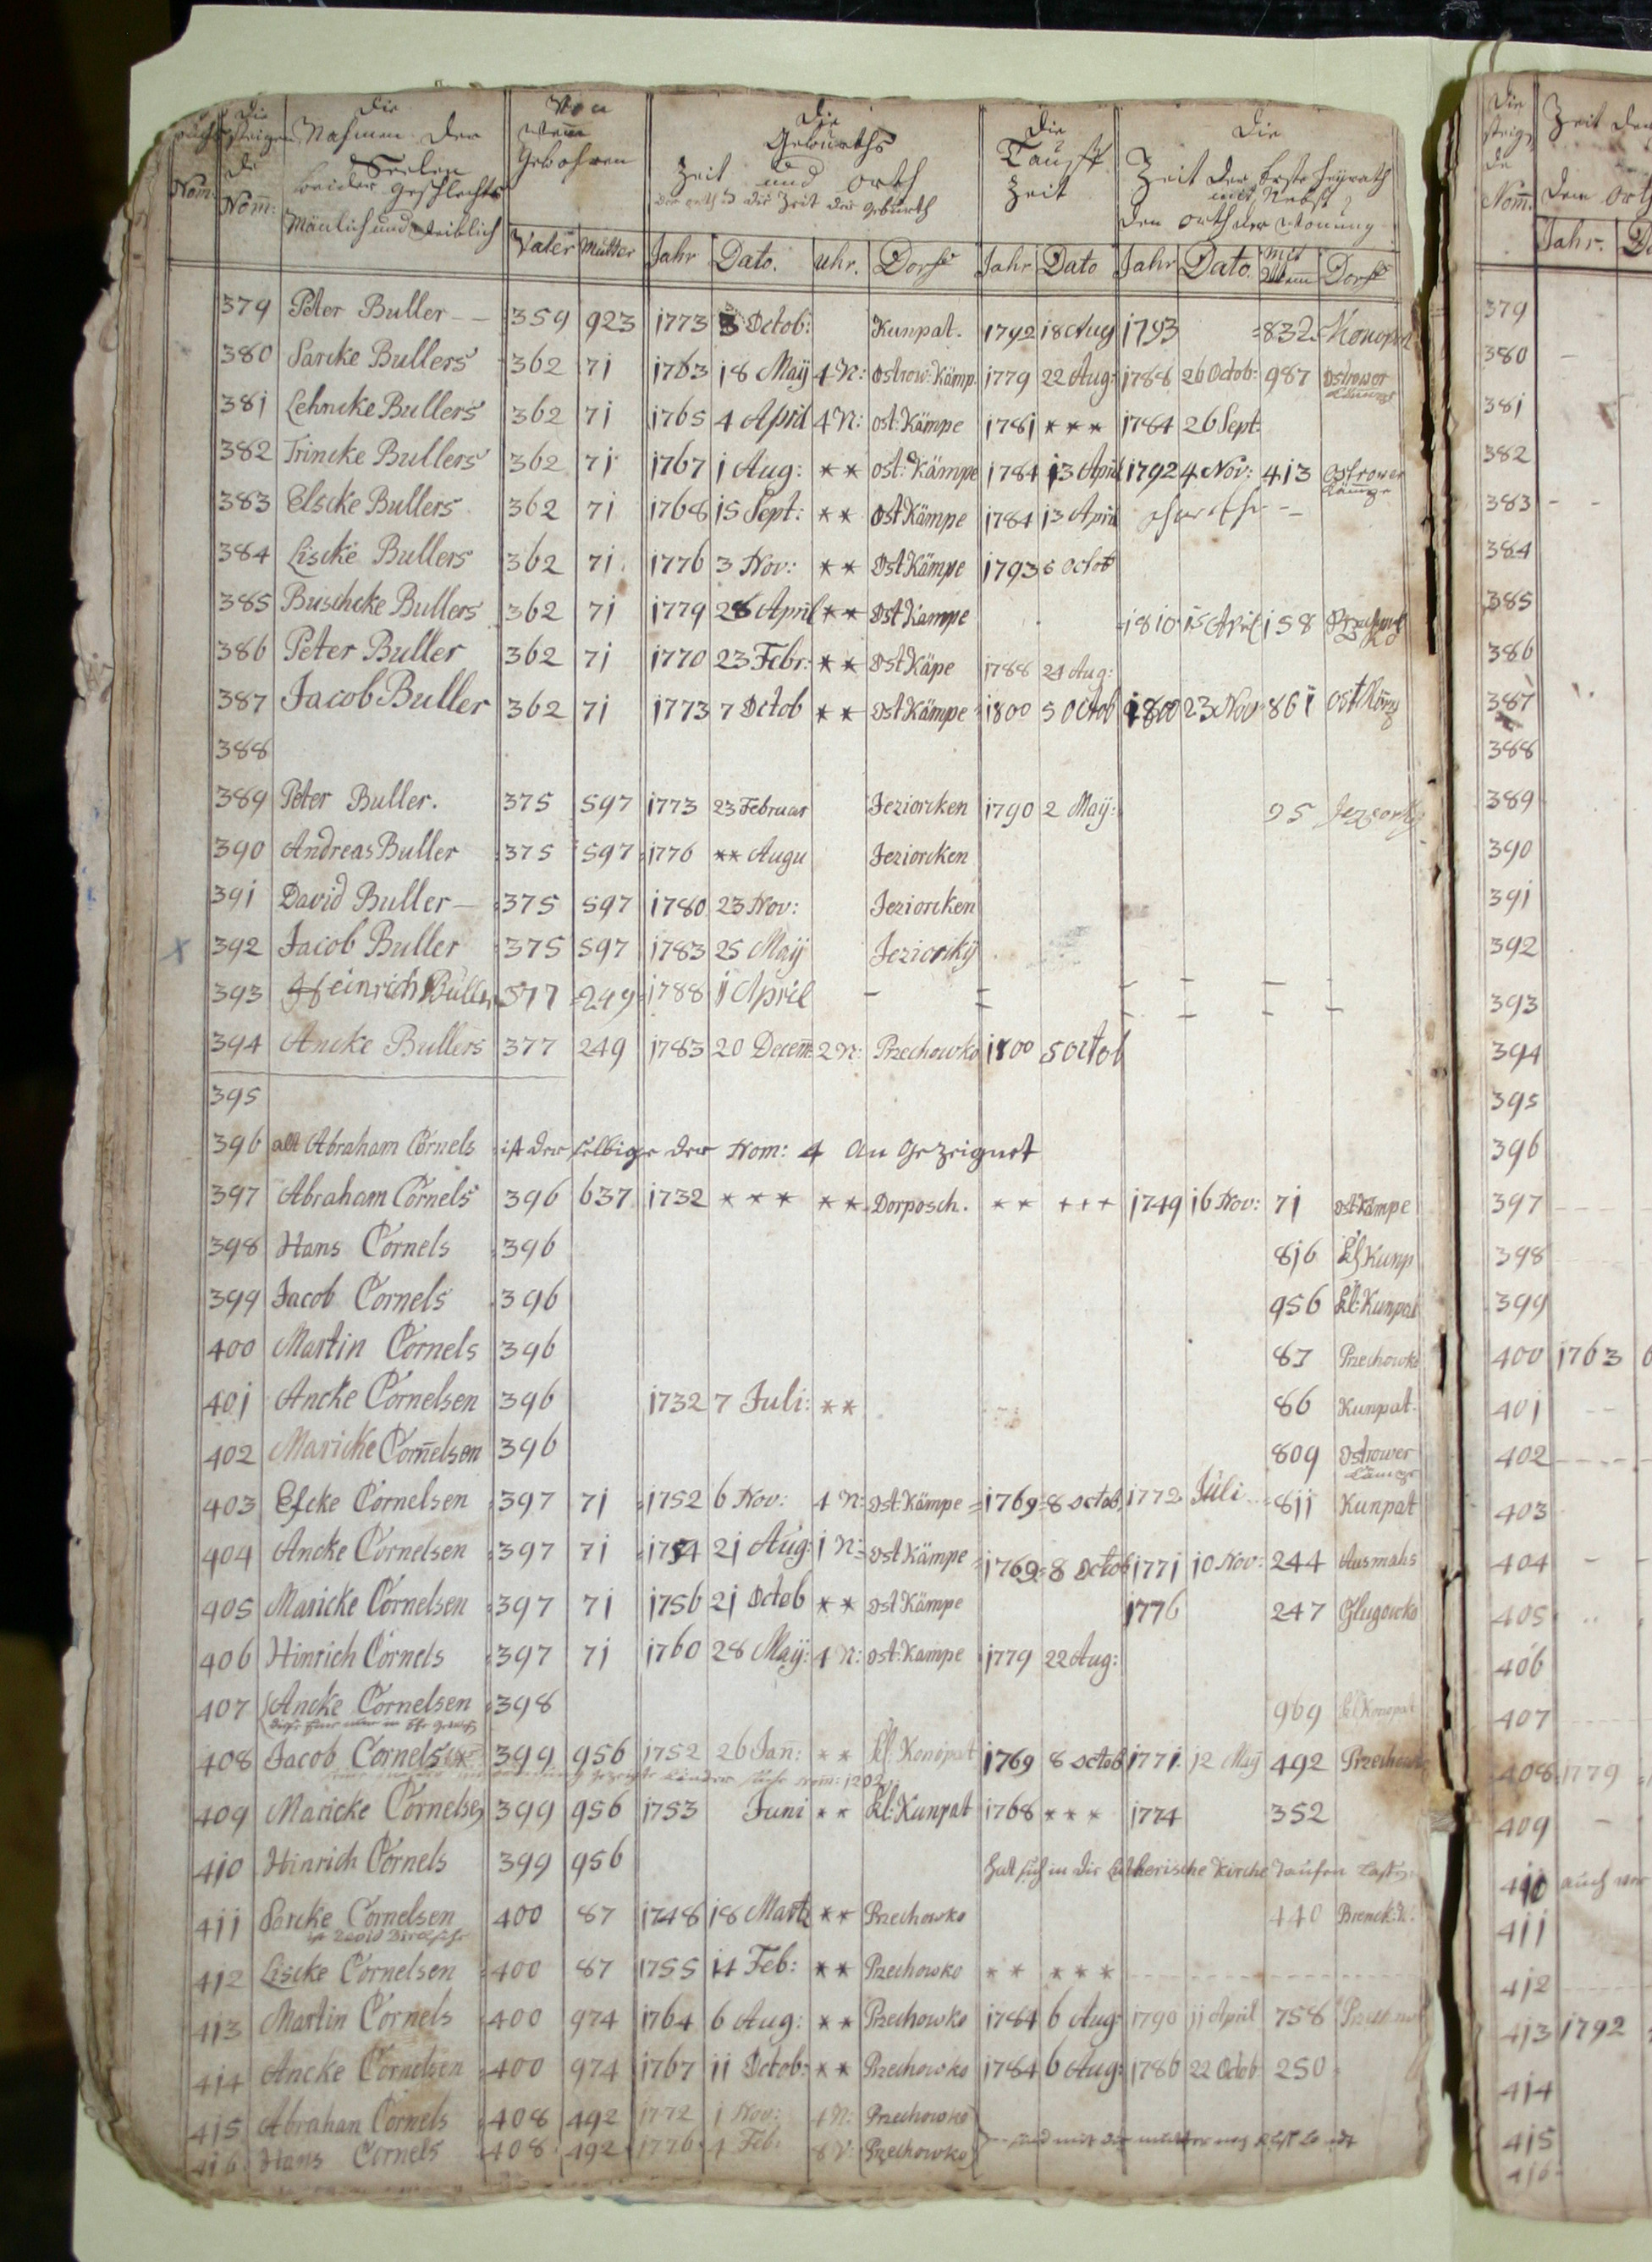 Die Nahmen der Seelen beider geschlechts Mänlich und Weiblich
Von Wem Gebohren
Die Geburths Zeit und Orth
Die Tauff Zeit
Die Zeit der Erste Heyrath mit Nebst den Orth der Wonung
Nom: Nom: Vater Mutter Jahr Dato. uhr. Dorff Jahr Dato Jahr Dato. mit Wem Dorff
379 Peter Buller 359 923 1773 3 Octob: Kunpat. 1792 18 Aug 1793 832 Konopat
380 Sarcke Bullers 362 71 1763 18 Maÿ 4 N: Ostrow: Kämp 1779 22 Aug: 1788 26 Octob: 987 Ostrower Kämpe
381 Lehncke Bullers 362 71 1765 4 April 4 N: Ost: Kämpe 1781 *** 1784 26 Sept
382 Trincke Bullers 362 71 1767 1 Aug: ** Ost: Kämpe 1784 13 April 1792 4 Nov: 413 Ostrower Kämpe
383 Elscke Bullers 362 71 1768 15 Sept: ** Ost Kämpe 1784 13 April
384 Liscke Bullers 362 71 1776 3 Nov: ** Ost Kämpe 1793 6 Octob
385 Buschcke Bullers 362 71 1779 28 April ** Ost Kampe 1810 15 April 158
386 Peter Buller 362 71 1770 23 Febr: ** Ost Käpe 1788 24 Aug:
387 Jacob Buller 362 71 1773 7 Octob ** Ost Kämpe 1800 5 Octob 1800 23 Nov 861 Ost Kämp
388
389 Peter Buller. 375 597 1773 23 Februar Jeziorcken 1790 2 Maÿ: 95
390 Andreas Buller 375 597 1776 ** Augu Jeziorcken
391 David Buller 375 597 1780 23 Nov: Jeziorcken
X 392 Jacob Buller 375 597 1783 25 Maÿ Jeziorikÿ
393 Heinrich Buller 377 249 1788 1 April
394 Ancke Bullers 377 249 1783 20 Decem: 2 N: Przechowko 1800 5 octob
395
396 alt Abraham Cornels ist der selbige der Nom: 4 an Gezeignet
397 Abraham Cornels 396 637 1732 *** ** Dorposch. ** +++ 1749 16 Nov: 71 Ost Kämpe
398 Hans Cornels 396 816 Kl Kunp
399 Jacob Cornels 396 956 Kl: Kunpat
400 Martin Cornels 396 87 Przechowko
401 Ancke Cornelsen 396 1732 7 Juli: ** 86 Kunpat.
402 Maricke Corn̄elsen 396 809 Ostrower Kämpe
403 Efcke Cornelsen 397 71 1752 6 Nov: 4 N: Ost: Kämpe 1769 8 octob 1772 Juli 811 Kunpat
404 Ancke Cornelsen 397 71 1754 21 Aug: 1 N: Ost Kämpe 1769 8 Octob 1771 10 Nov: 244 Ausmahs
405 Maricke Cornelsen 397 71 1756 21 Octob ** Ost Kämpe 1776 247 Glugowko
406 Hinrich Cornels 397 71 1760 28 Maÿ: 4 N: Ost: Kampe 1779 22 Aug:
407 Ancke Cornelsen 398 969 kl Konopat
408 Jacob Cornels 399 956 1752 26 Jan̄: ** kl: Konopat 1769 8 octob 1771 12 Maÿ 492 Przechowko
Kinder Nom: 1202
409 Maricke Cornelsen 399 956 1753 Juni ** kl: Kunpat 1768 *** 1774 352
410 Hinrich Cornels 399 956 hat sich in die Lutherische Kirche Taufen Lassen
411 Sarcke Cornelsen 400 87 1748 18 Martz ** Przechowko 440 Brenck:
412 Liscke Cornelsen 400 87 1755 14 Feb: ** Przechowko ** ***
413 Martin Cornels 400 974 1764 6 Aug: ** Przechowko 1784 6 Aug: 1790 11 April 758
414 Ancke Cornelsen 400 974 1767 11 Octob: ** Przechowko 1784 6 Aug: 1786 22 Octob 250
415 Abrahan Cornels 408 492 1772 1 Nov: 4 N: Przechowko
416 Hans Cornels 408 492 1776 4 Feb: 8 V: Przechowko
Die Zeit den
Nom: den Orth
Jahr.
379
380
381
382
383
384
385
386
387
388
389
390
391
392
393
394
395
396
397
398
399
400 1763 6
401
402
403
404
405
406
407
408 1779
409
410 auch
411
412
413 1792
414
415
416